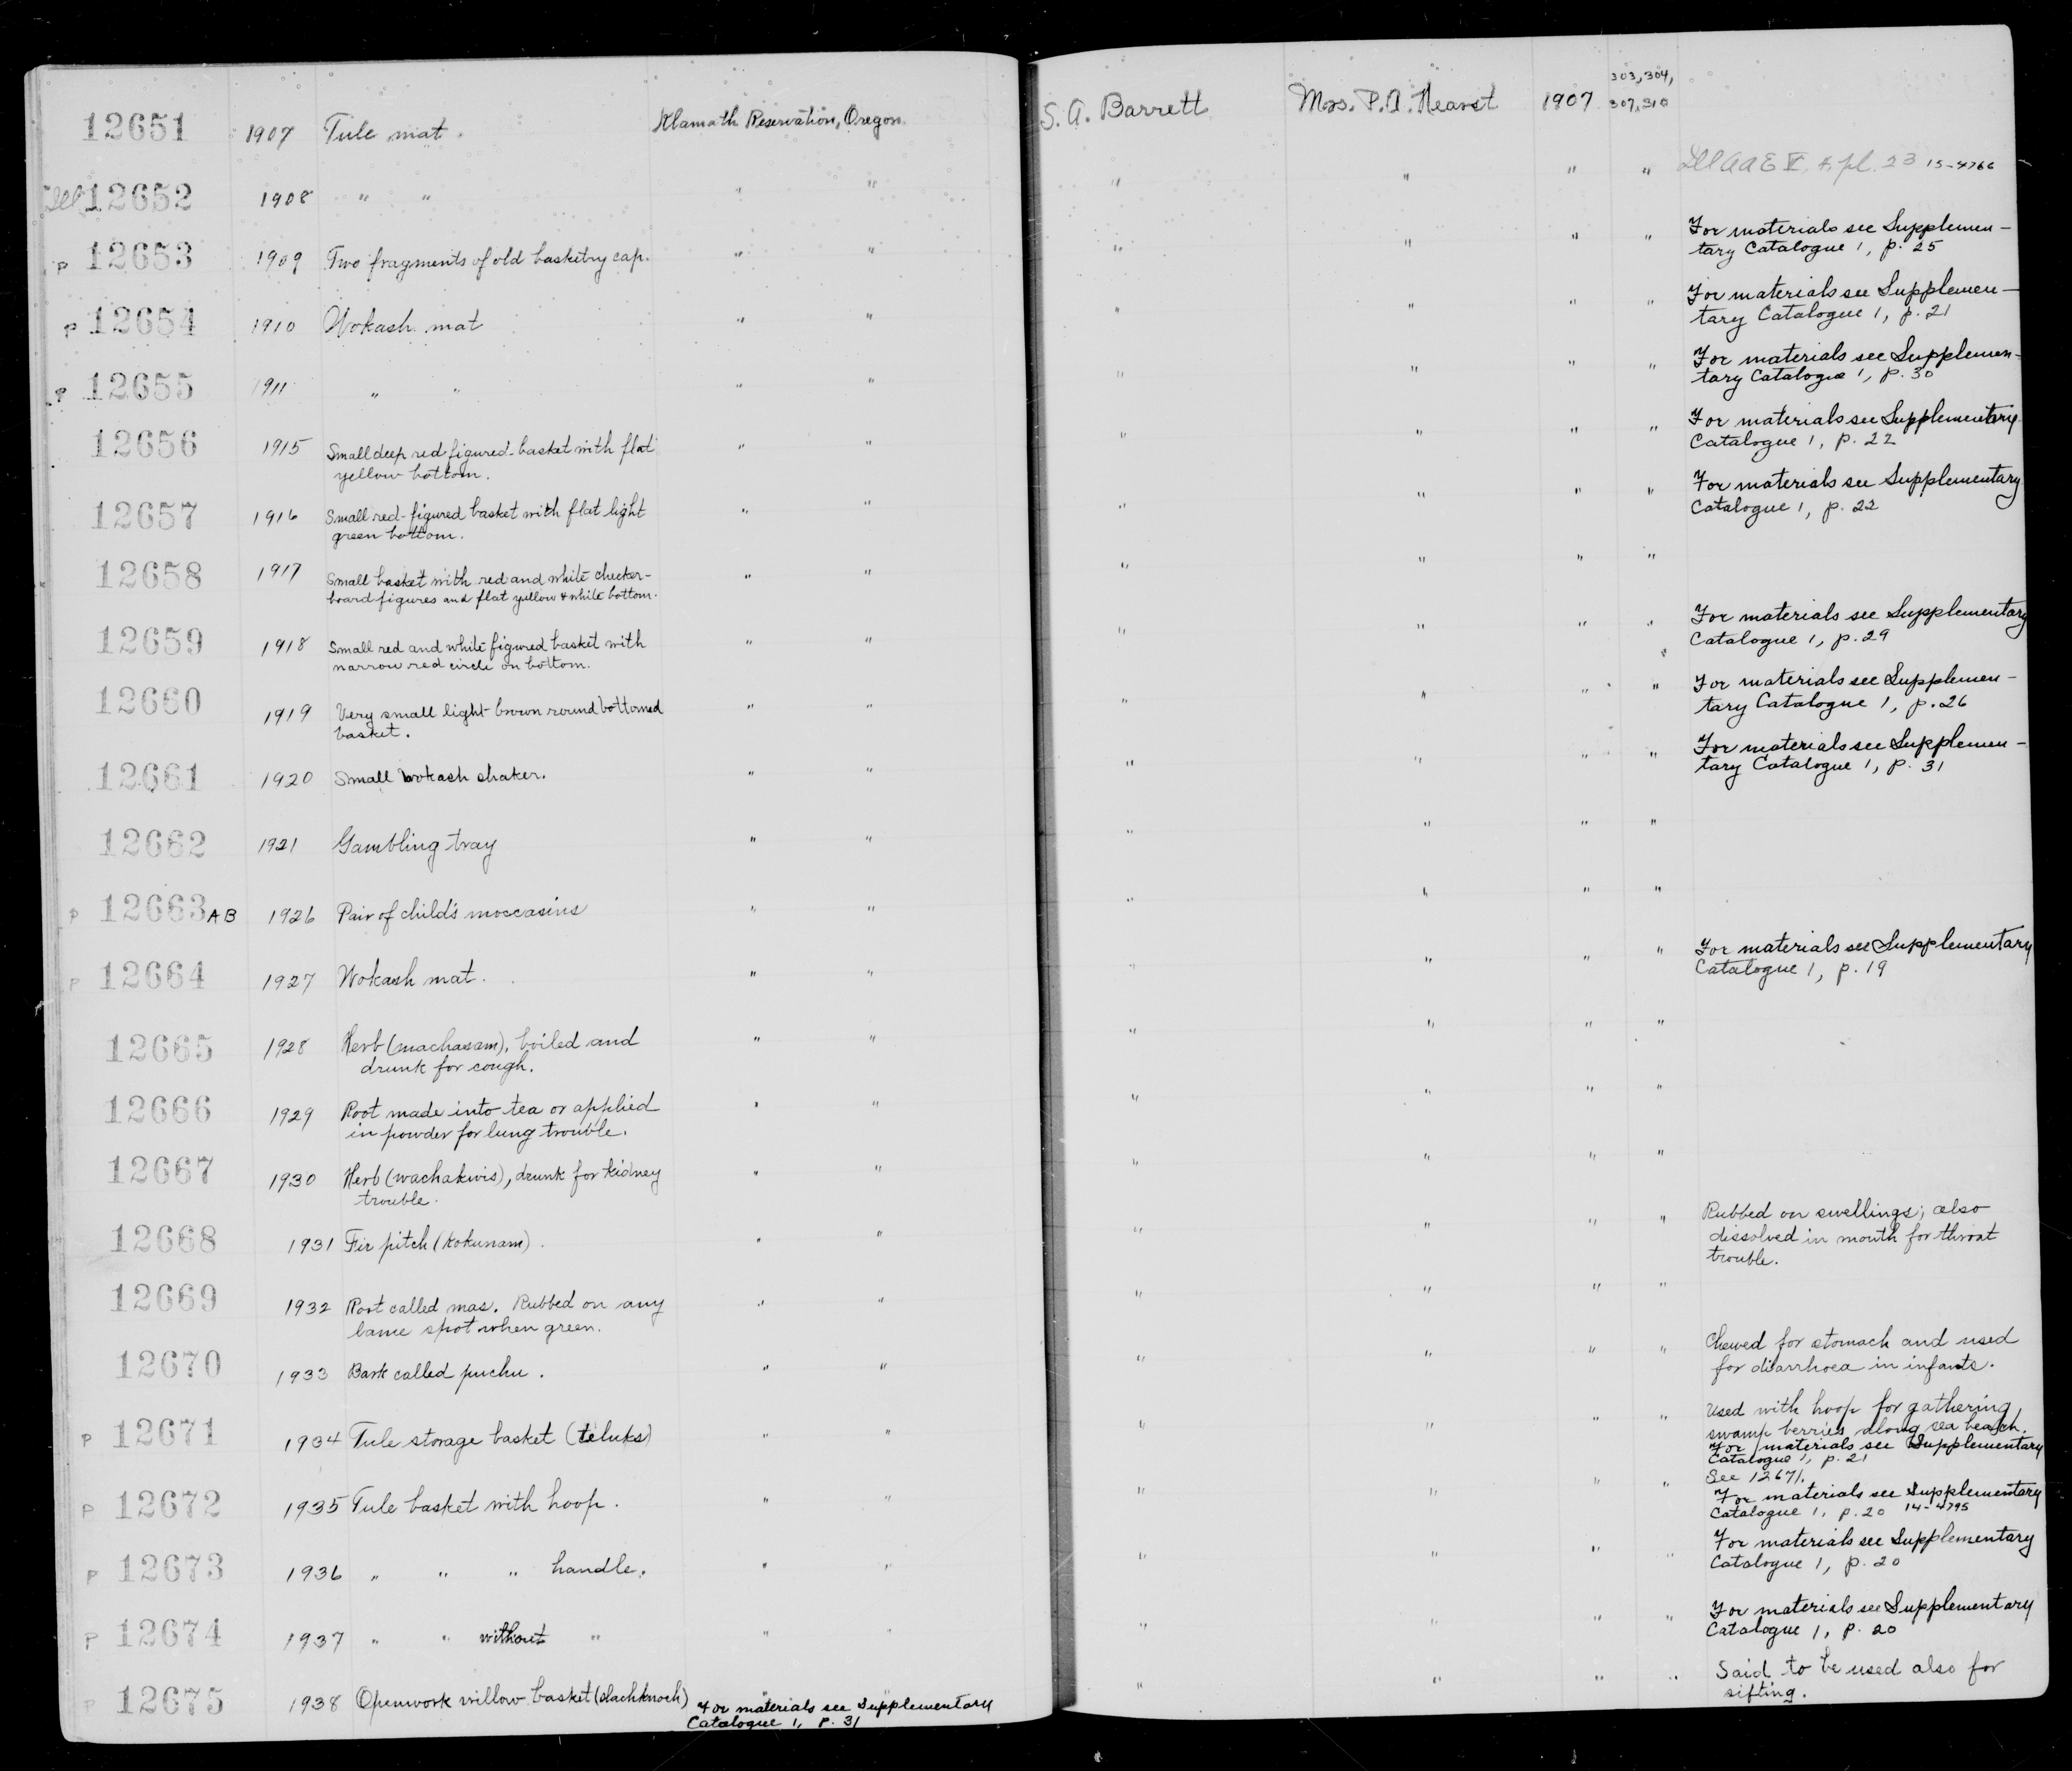 12651 1907 Tule mat. Klamath Reservation, Oregon. S. A. Barrett Mrs. P. A. Hearst 1907 303, 304,
307, 310
12652 1908 " " " " " " " " 15-4766
P 12653 1909 Two fragments of old basketry cap. " " " " " " For materials see Supplemen-
tary Catalogue 1, p. 25
P 12654 1910 Wokash mat " " " " " " For materials see Supplemen-
tary Catalogue 1, p. 21
P 12655 1911 " " " " " " " " For materials see Supplemen-
tary Catalogue 1, p. 30
12656 1915 Small deep red figured basket with flat " " " " " " For materials see Supplementary
yellow bottom. Catalogue 1, p. 22
12657 1916 Small red-figured basket with flat light " " " " " " For materials see Supplementary
green bottom. Catalogue 1, p. 22
12658 1917 Small basket with red and white checker- " " " " " "
board figures and flat yellow & white bottom.
12659 1918 Small red and white figured basket with " " " " " " For materials see Supplementary
narrow red circle on bottom. Catalogue 1, p. 29
12660 1919 Very small light brown round bottomed " " " " " " For materials see Supplemen-
basket. tary Catalogue 1, p. 26
12661 1920 Small wokash shaker. " " " " " " For materials see Supplemen-
tary Catalogue 1, p. 31
12662 1921 Gambling tray " " " " " "
P 12663 AB 1926 Pair of child's moccasins " " " " " "
P 12664 1927 Wokash mat. " " " " " " For materials see Supplementary
Catalogue 1, p. 19
12665 1928 Herb (machasam), boiled and " " " " " "
drunk for cough.
12666 1929 Root made into tea or applied " " " " " "
in powder for lung trouble.
12667 1930 Herb (wachakwis), drunk for kidney " " " " " "
trouble.
12668 1931 Fir pitch (kokunam). " " " " " " Rubbed on swellings; also
dissolved in mouth for throat
trouble.
12669 1932 Root called mas. Rubbed on any " " " " " "
lame spot when green.
12670 1933 Bark called puchu. " " " " " " Chewed for stomach and used
for diarrhoea in infants.
P 12671 1934 Tule storage basket (teluks) " " " " " " Used with hoop for gathering
swamp berries along sea beach.
For materials see Supplementary
Catalogue 1, p. 21
P 12672 1935 Tule basket with hoop. " " " " " " See 12671.
For materials see Supplementary
Catalogue 1, p. 20 14-4795
P 12673 1936 " " " handle. " " " " " " For materials see Supplementary
Catalogue 1, p. 20
P 12674 1937 " " without " " " " " " " For materials see Supplementary
Catalogue 1, p. 20
P 12675 1938 Openwork willow basket " " " " " " Said to be used also for
sifting.
For materials see Supplementary
Catalogue 1, p. 31